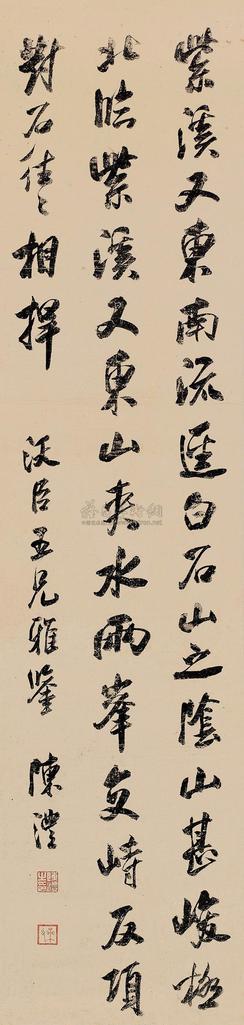 紫溪又東南流逕白石山之陰山甚峻極
北臨紫溪又東山夾水兩峯交峙反項
對石往々相捍
沃臣五兄雅鑒 陳澧